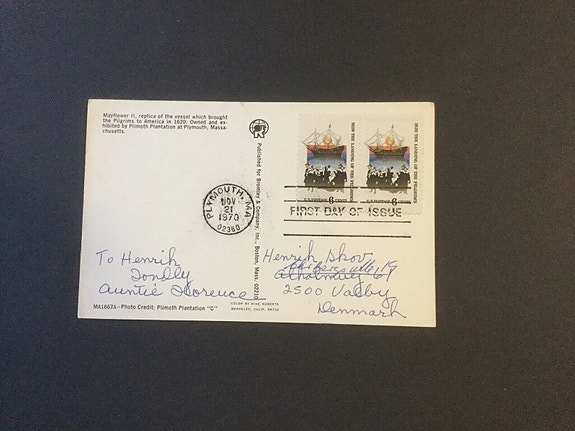 Mayflower II, replica of the vessel which brought
the Pilgrims to America in 1620. Owned and ex-
hibited by Plimoth Plantation at Plymouth, Massa-
chusetts.
Published for Bromley & Company, Inc., Boston, Mass. 02210
1620 THE LANDING OF THE PILGRIMS
U.S. POSTAGE 6 CENTS
1620 THE LANDING OF THE PILGRIMS
U.S. POSTAGE 6 CENTS
PLYMOUTH, MA
NOV
21
1970
02360
FIRST DAY OF ISSUE
To Henrik
Fondly
Auntie Florence
Henrik Skov
2500 Valby
Denmark
MA1662A—Photo Credit: Plimoth Plantation "C"
COLOR BY MIKE ROBERTS
BERKELEY, CALIF. 94710